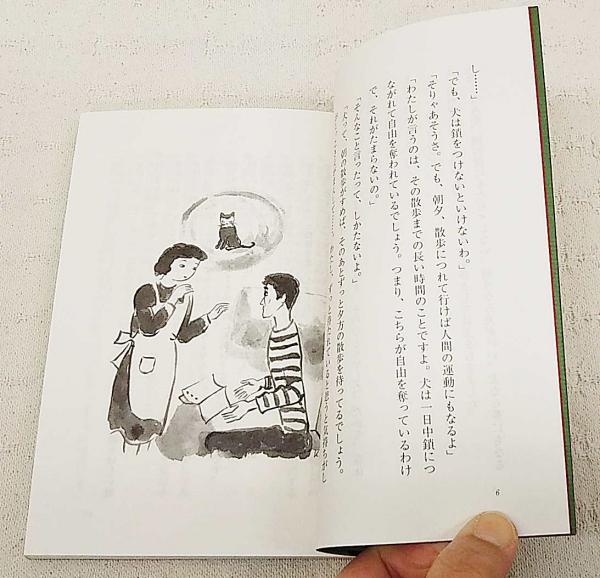 し……」
「でも、犬は鎖をつけないといけないわ。」
「そりゃあそうさ。でも、朝夕、散歩につれて行けば人間の運動にもなるよ」
「わたしが言うのは、その散歩までの長い時間のことですよ。犬は一日中鎖につ
ながれて自由を奪われているでしょう。つまり、こちらが自由を奪っているわけ
で、それがたまらないの。」
「そんなこと言ったって、しかたないよ。」
「犬って、朝の散歩がすめば、そのあとずっと夕方の散歩を待ってるでしょう。
6